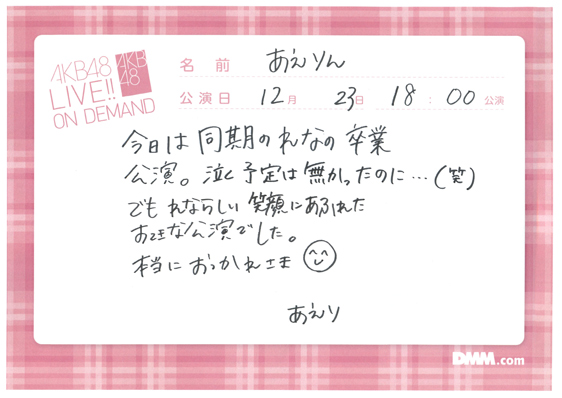 AKB48
LIVE!!
ON DEMAND
AKB
48
名前 あえりん
公演日 12月 23日 18:00 公演
今日は同期のれなの卒業
公演。泣く予定は無かったのに…(笑)
でもれならしい笑顔にあふれた
な公演でした。
本当におつかれさま
あえり
DMM.com